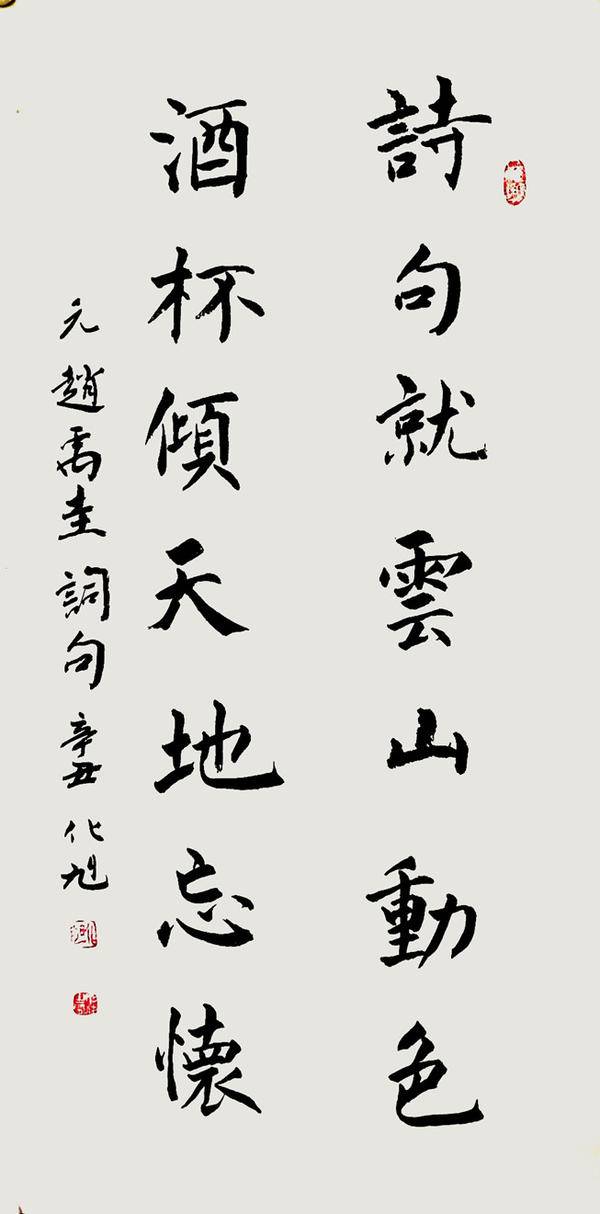 詩句就雲山動色
酒杯傾天地忘懷
元趙禹圭詞句辛丑化旭